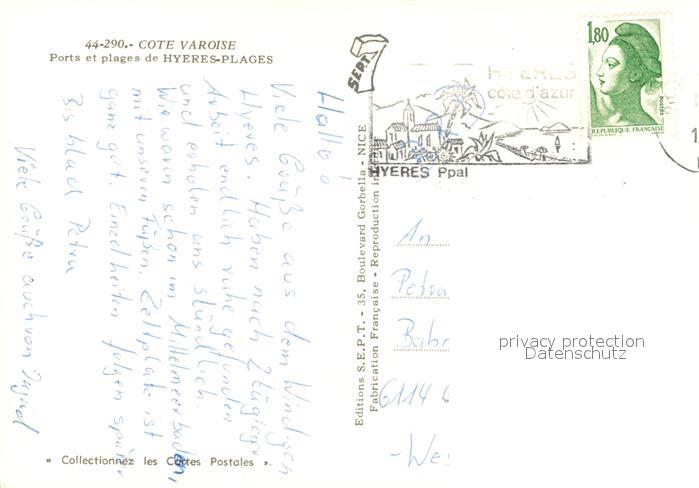 44-290.- COTE VAROISE
Ports et plages de HYERES-PLAGES
Hallo!
Viele Grüße aus dem Windigen
Hyeres. Haben nach 2tägiger
Arbeit endlich ruhe gefunden
und erholen uns stündlich.
Wir waren schon im Mittelmeer baden,
mit unseren Füßen. Zeltplatz ist
ganz gut. Einzelheiten folgen später
Bis bald Petra
Viele Grüße auch von Ingrid
« Collectionnez les Cartes Postales ».
Editions S.E.P.T. - 35, Boulevard Gorbella - NICE
Fabrication Française - Reproduction in
SEPT
HYERES
côte d'azur
HYERES Ppal
1,80
REPUBLIQUE FRANÇAISE
An
Petra
Bahn
6114
-We
privacy protection
Datenschutz